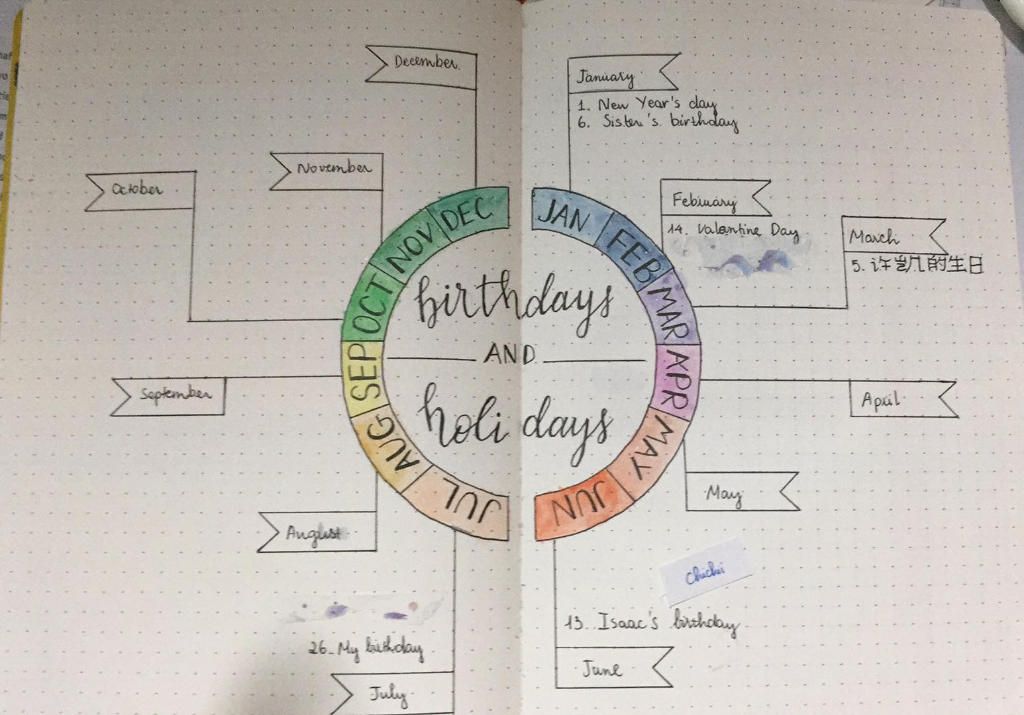 December
January
1. New Year's day
6. Sister's birthday
November
October
February
14. Valentine Day
March
5. 许凯的生日
JAN
FEB
MAR
APR
MAY
JUN
JUL
AUG
SEP
OCT
NOV
DEC
birthdays
AND
holidays
September
April
May
August
Chichi
13. Isaac's birthday
June
26. My birthday
July